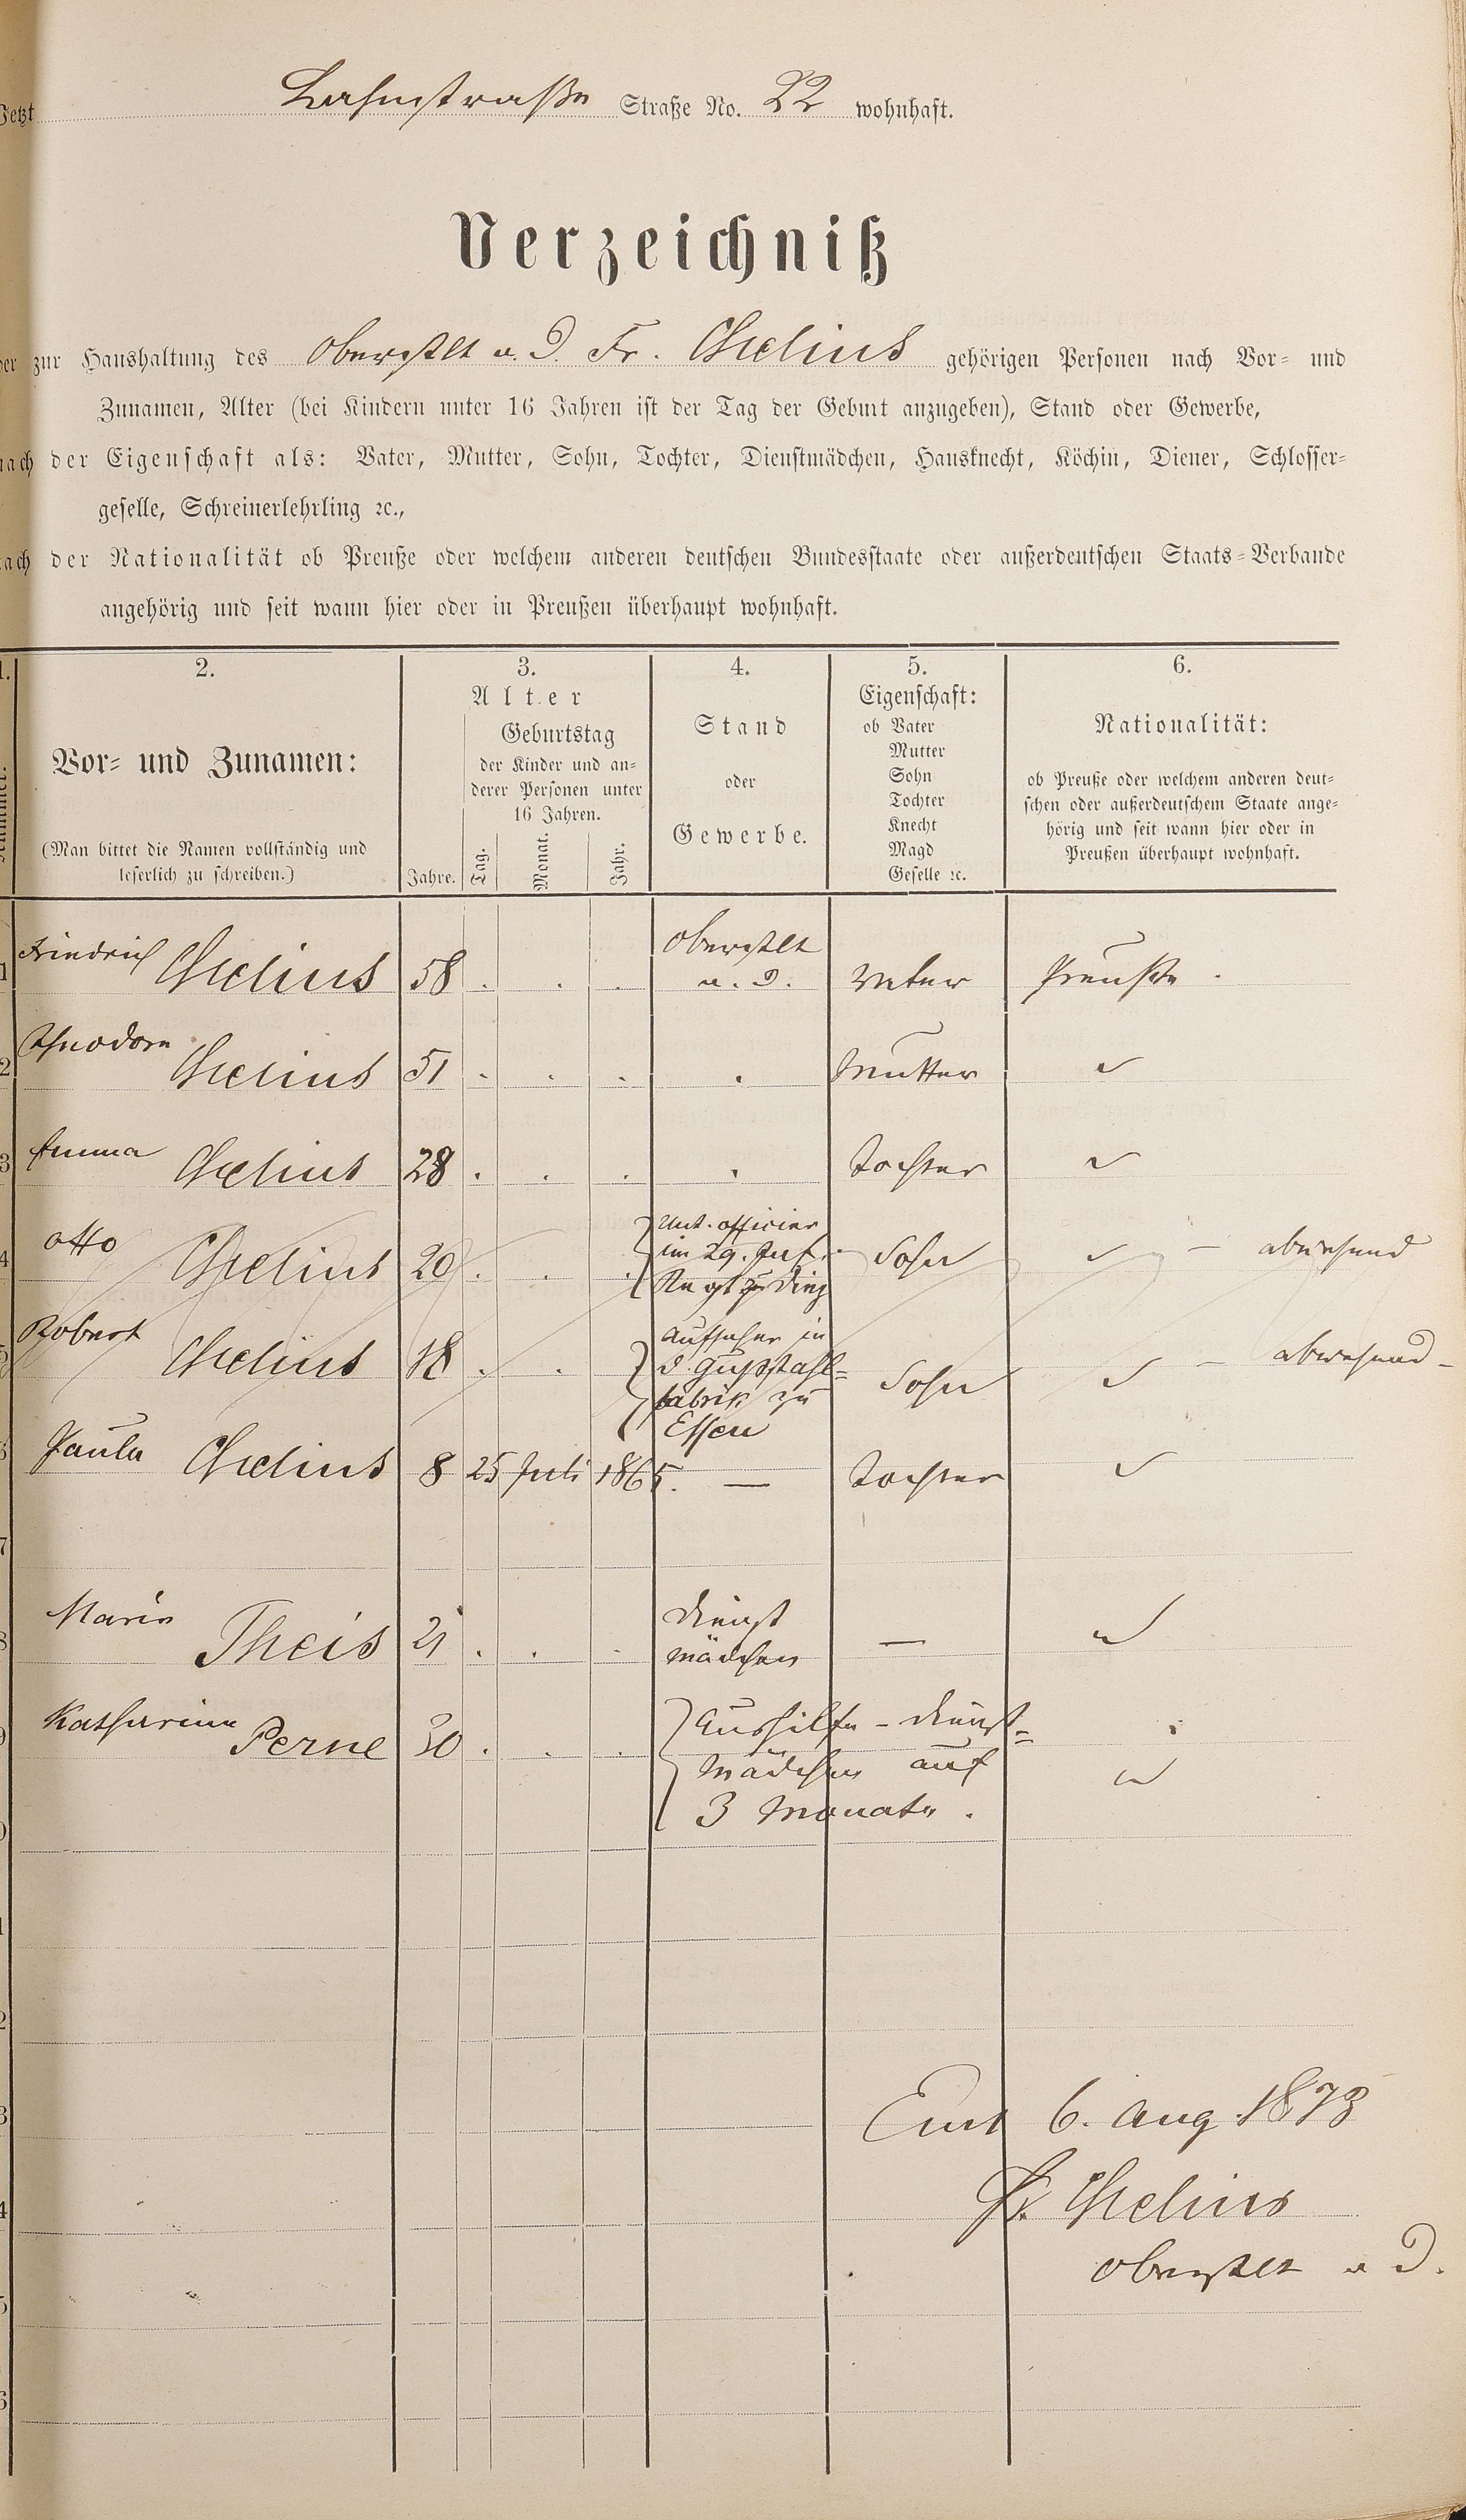 Jetzt Lahnstraße Straße No. 22 wohnhaft.
Verzeichniß
der zur Haushaltung des Oberstlt a. D. Fr. Chelius gehörigen Personen nach Vor- und
Zunamen, Alter (bei Kindern unter 16 Jahren ist der Tag der Geburt anzugeben), Stand oder Gewerbe,
nach der Eigenschaft als: Vater, Mutter, Sohn, Tochter, Dienstmädchen, Hausknecht, Köchin, Diener, Schlosser-
geselle, Schreinerlehrling ꝛc.,
nach der Nationalität ob Preuße oder welchem anderen deutschen Bundesstaate oder außerdeutschen Staats-Verbande
angehörig und seit wann hier oder in Preußen überhaupt wohnhaft.
1. 2. 3. 4. 5. 6.
Vor- und Zunamen:
(Man bittet die Namen vollständig und
leserlich zu schreiben.)
Alter
Jahre.
Geburtstag
der Kinder und an-
derer Personen unter
16 Jahren.
Tag. Monat. Jahr.
Stand
oder
Gewerbe.
Eigenschaft:
ob Vater
Mutter
Sohn
Tochter
Knecht
Magd
Geselle ꝛc.
Nationalität:
ob Preuße oder welchem anderen deut-
schen oder außerdeutschem Staate ange-
hörig und seit wann hier oder in
Preußen überhaupt wohnhaft.
1 Friedrich Chelius 58 . . . Oberstlt
a. D. Vater Preuße .
2 Theodore Chelius 51 . . . . Mutter
3 Emma Chelius 28 . . . . Tochter
4 Otto Chelius 20 . . . Unt. officier
im 29. Inf.
Regt zu Diez Sohn – abwesend
5 Robert Chelius 18 . . Aufseher in
d. Gußstahl-
fabrik zu
Essen Sohn – abwesend –
6 Paula Chelius 8 25 Juli 1865. — Tochter
7
8 Marie Theis 21 . . . Dienst
mädchen —
9 Katharina Perne 30 . . . Aushilfe - Dienst-
mädchen auf
3 Monate .
Ems 6. Aug 1873
Fr. Chelius
Oberstlt a D.